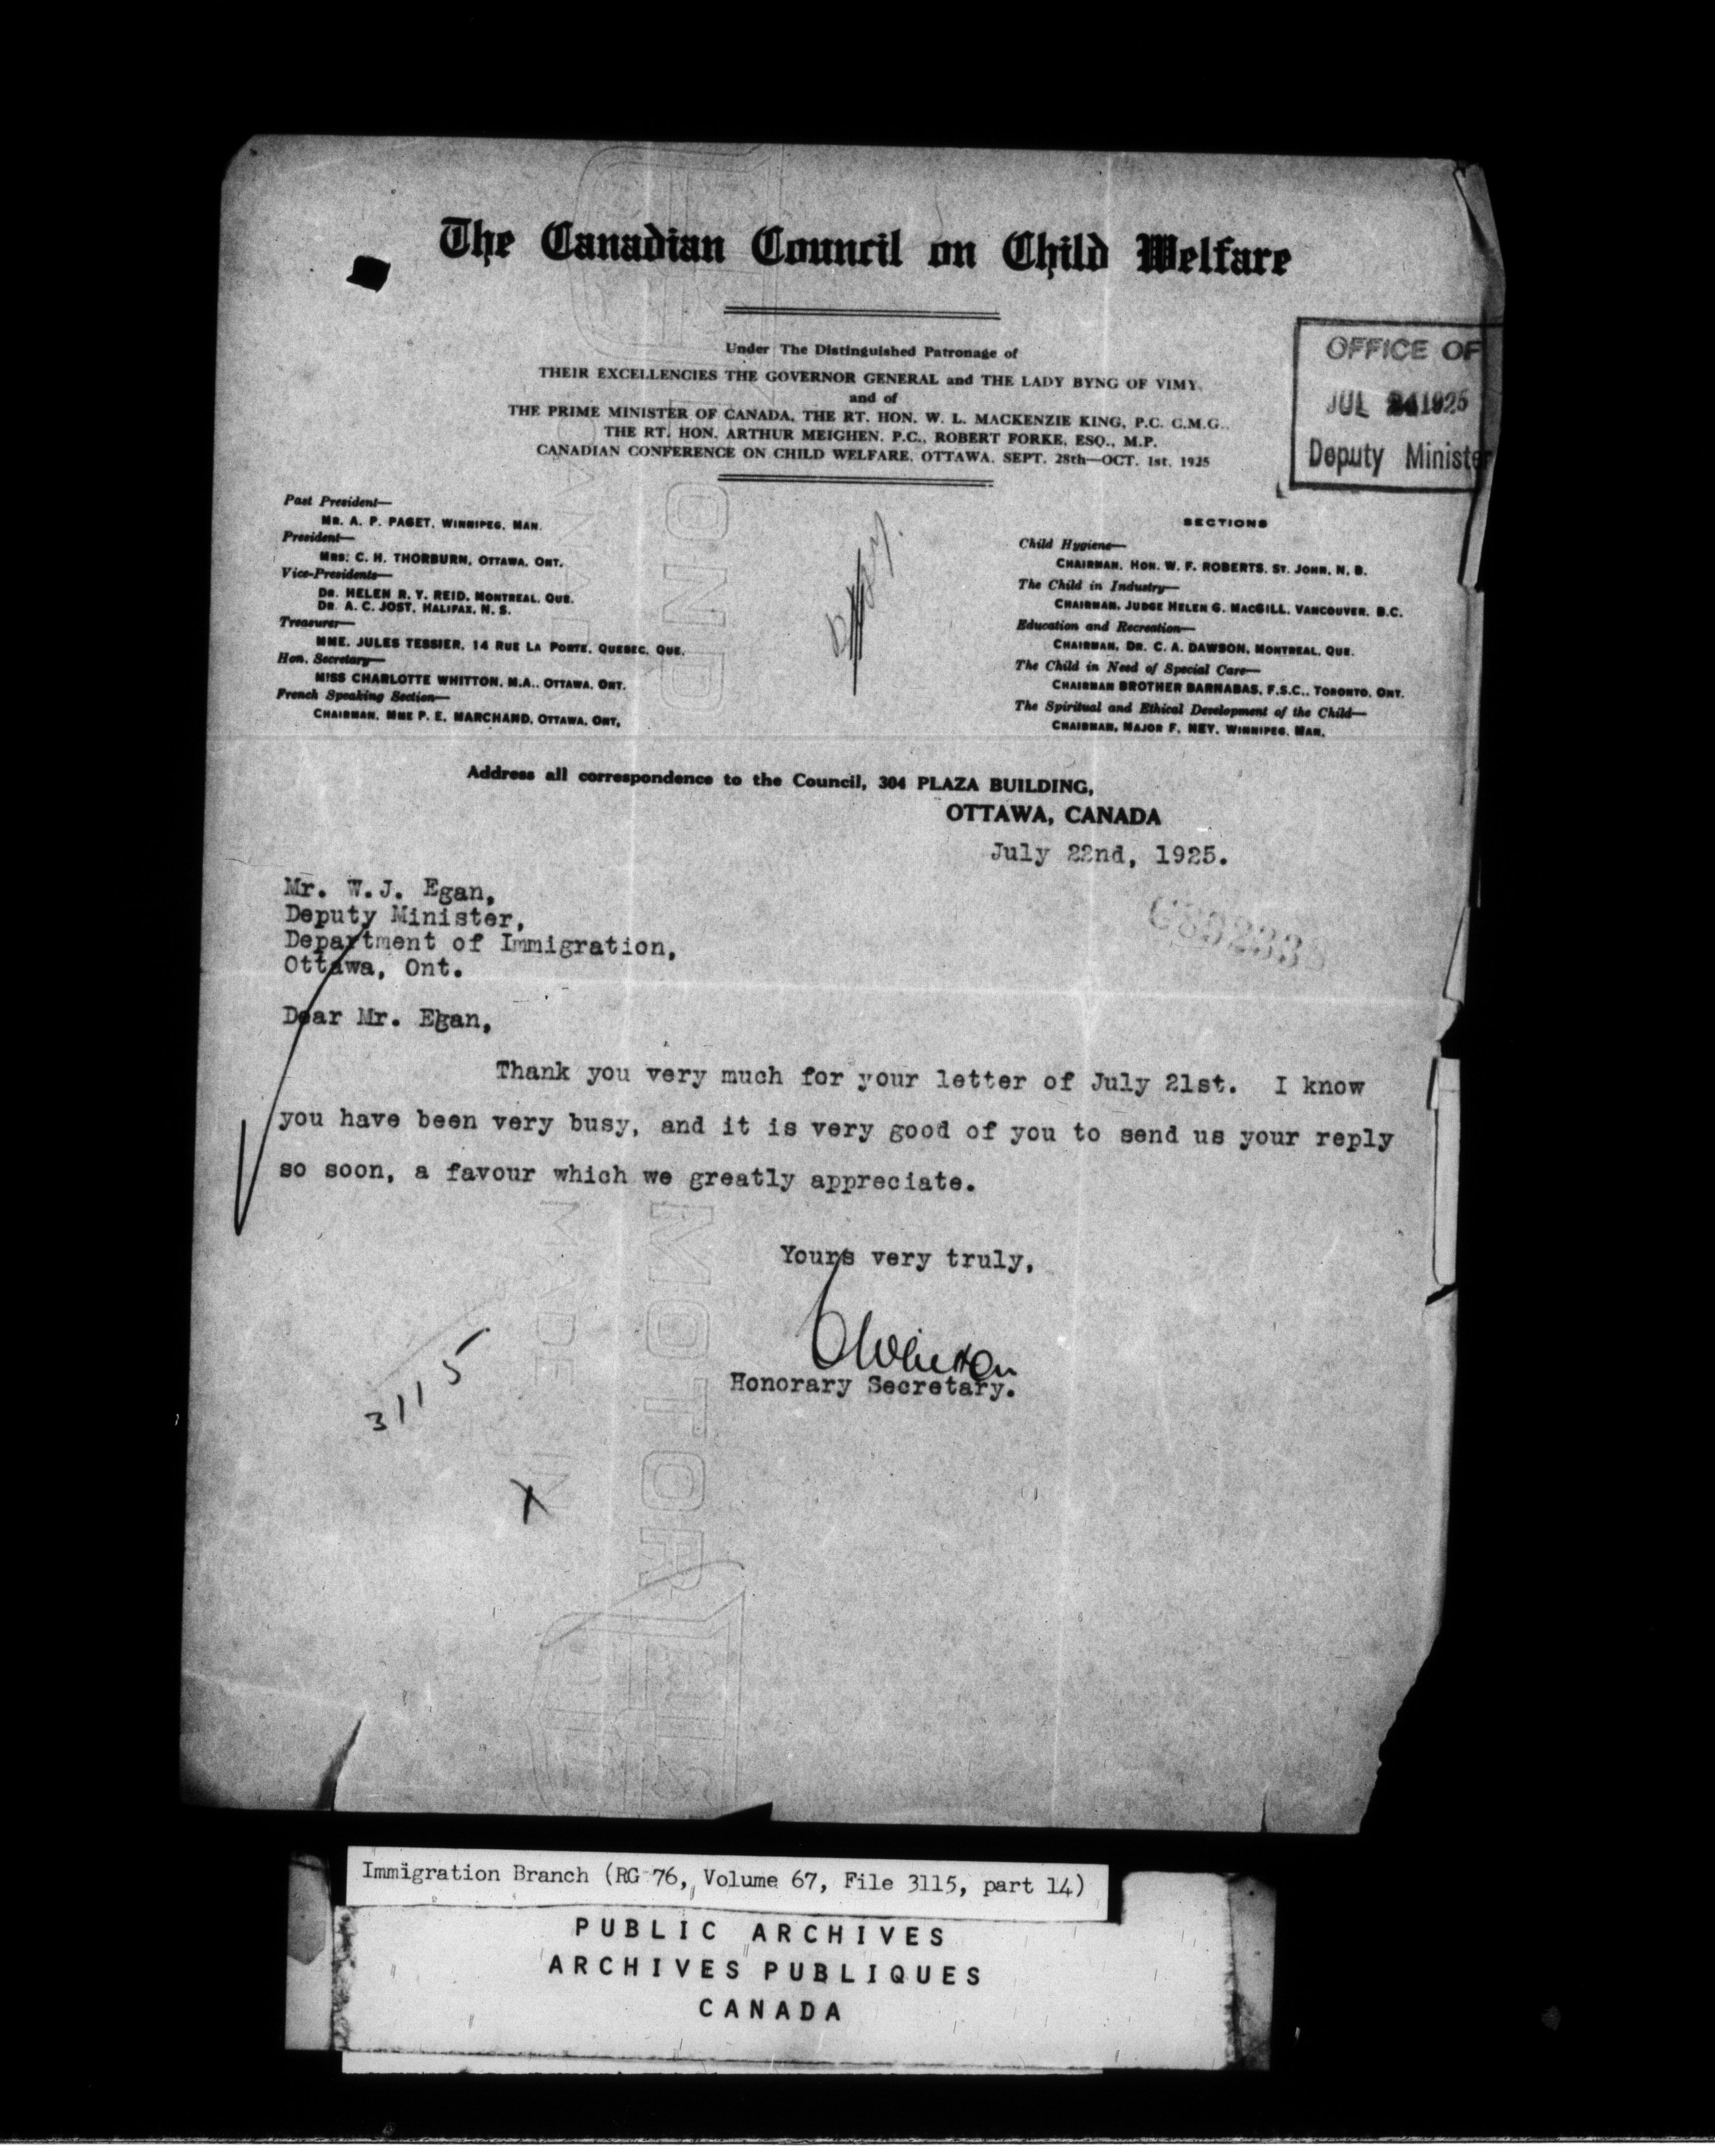 The Canadian Council on Child Welfare
Under The Distinguished Patronage of
THEIR EXCELLENCIES THE GOVERNOR GENERAL and THE LADY BYNG OF VIMY,
and of
THE PRIME MINISTER OF CANADA, THE RT. HON. W. L. MACKENZIE KING, P.C. C.M.G.,
THE RT. HON. ARTHUR MEIGHEN, P.C., ROBERT FORKE, ESQ., M.P.
CANADIAN CONFERENCE ON CHILD WELFARE, OTTAWA, SEPT. 28th—OCT. 1st, 1925
OFFICE OF
JUL 24 1925
Deputy Minister
Past President—
MR. A. P. PAGET, WINNIPEG, MAN.
President—
MRS. C. H. THORBURN, OTTAWA, ONT.
Vice-Presidents—
DR. HELEN R. Y. REID, MONTREAL, QUE.
DR. A. C. JOST, HALIFAX, N. S.
Treasurer—
MME. JULES TESSIER, 14 RUE LA PORTE, QUEBEC, QUE.
Hon. Secretary—
MISS CHARLOTTE WHITTON, M.A., OTTAWA, ONT.
French Speaking Section—
CHAIRMAN, MME P. E. MARCHAND, OTTAWA, ONT,
SECTIONS
Child Hygiene—
CHAIRMAN, HON. W. F. ROBERTS, ST. JOHN, N. B.
The Child in Industry—
CHAIRMAN, JUDGE HELEN G. MACGILL, VANCOUVER, B.C.
Education and Recreation—
CHAIRMAN, DR. C. A. DAWSON, MONTREAL, QUE.
The Child in Need of Special Care—
CHAIRMAN BROTHER BARNABAS, F.S.C., TORONTO, ONT.
The Spiritual and Ethical Development of the Child—
CHAIRMAN, MAJOR F. NEY, WINNIPEG, MAN.
Address all correspondence to the Council, 304 PLAZA BUILDING,
OTTAWA, CANADA
July 22nd, 1925.
Mr. W.J. Egan,
Deputy Minister,
Department of Immigration,
Ottawa, Ont.
Dear Mr. Egan,
Thank you very much for your letter of July 21st. I know
you have been very busy, and it is very good of you to send us your reply
so soon, a favour which we greatly appreciate.
Yours very truly,
CWhitton
Honorary Secretary.
3115
X
BOND
MADE IN
MOTOR
Immigration Branch (RG 76, Volume 67, File 3115, part 14)
PUBLIC ARCHIVES
ARCHIVES PUBLIQUES
CANADA